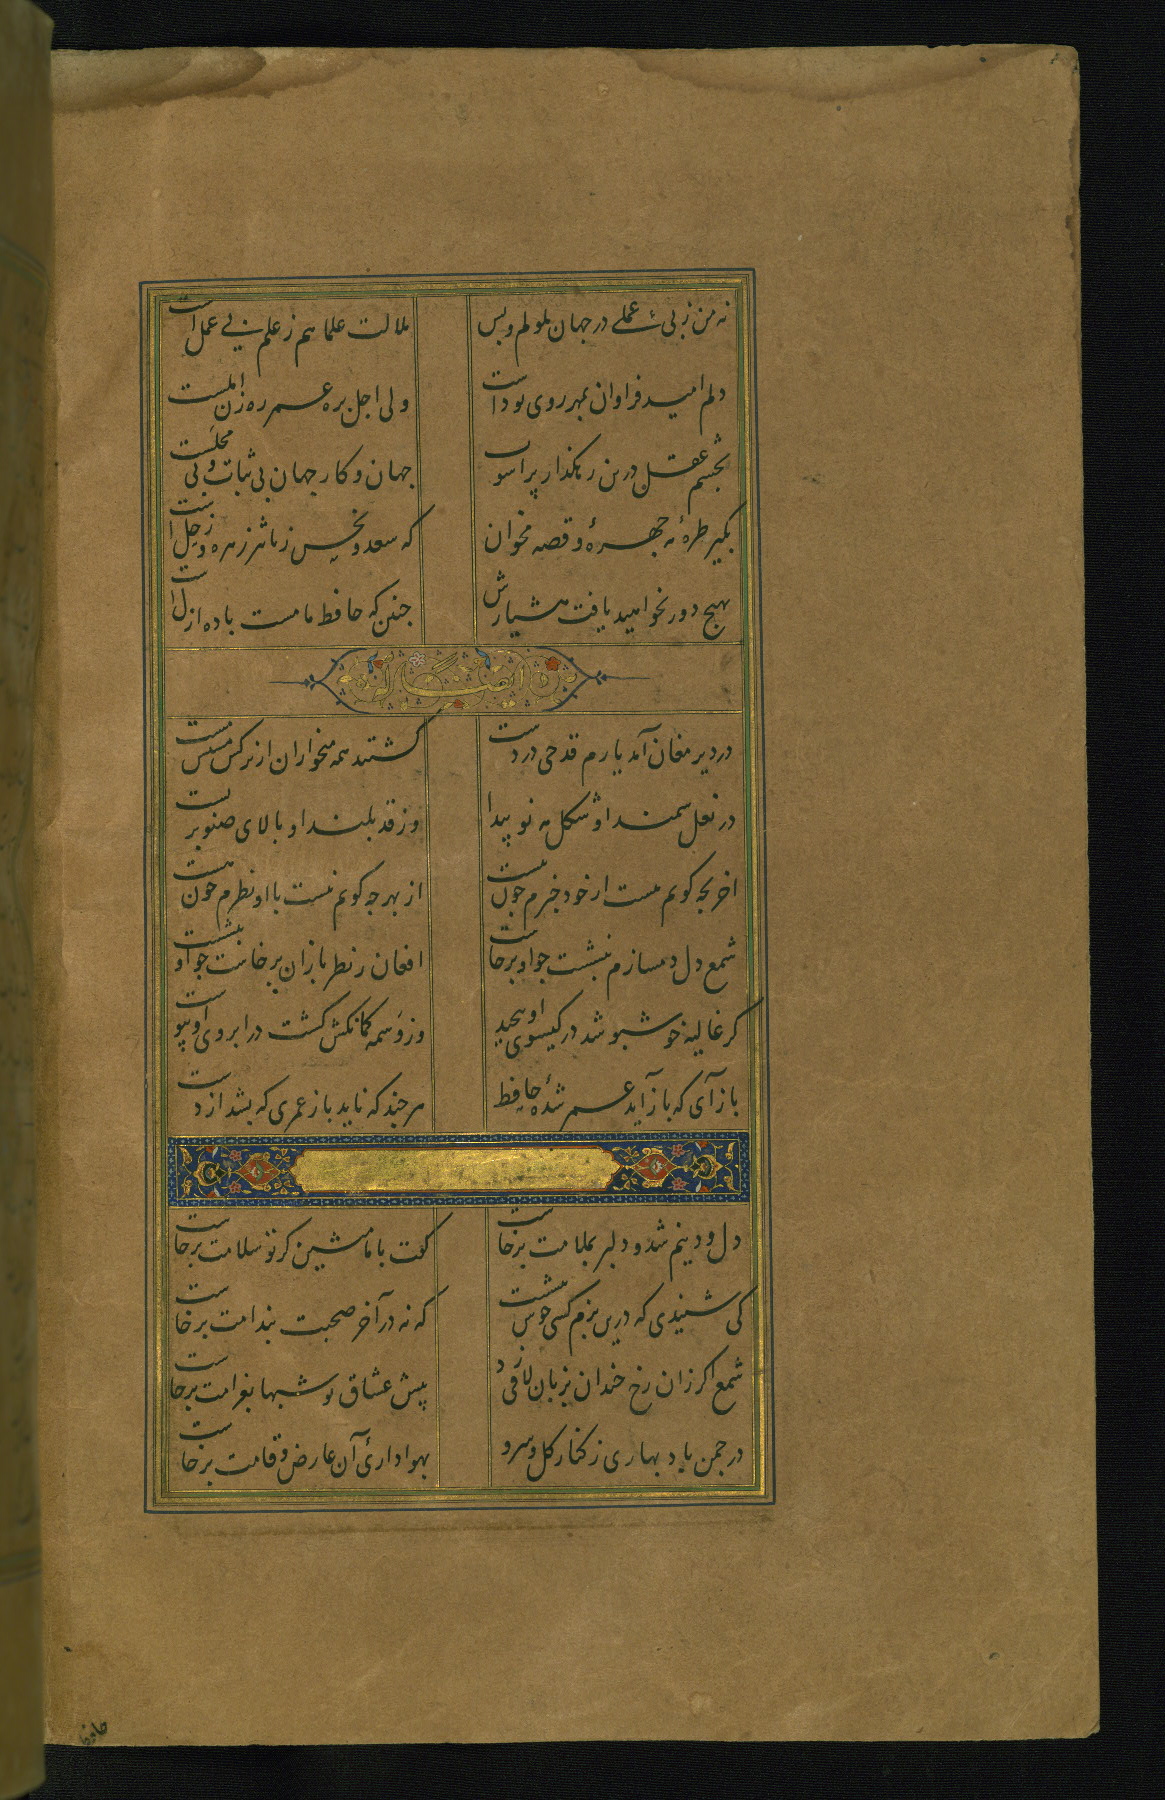 نه من ز بی عملی در جهان ملولم و بس
ملالت علما هم ز علم بی عمل است
دلم امید فراوان بمهر روی تو داشت
ولی اجل بره عمر رهزن املست
بچشم عقل درین رهکذار پر اشوب
جهان و کار جهان بی ثبات و بی محلست
بکیر طرهٔ مه چهرهٔ و قصه مخوان
که سعد و نحس ز تاثیر زهره و زحل است
بهیچ دور نخواهید یافت هشیارش
چنین که حافظ ما مست باده ازل است
در دیر مغان آمد یارم قدحی در دست
کشتند همه میخواران از نرکس مستش مست
در نعل سمند او شکل مه نو پیدا
وز قد بلند او بالای صنوبر پست
اخر بچه کویم هست از خود خبرم چون نیست
از بهر چه کویم نیست با او نظرم چون هست
شمع دل دمسازم بنشست چو او برخاست
افغان ز نظر بازان برخاست چو او بنشست
کر غالیه خوشبو شد در کیسوی او پیچید
وز وسمه کمانکش کشت در ابروی او پیوست
باز آی که باز آید عمر شدهٔ حافظ
هر چند که ناید باز عمری که بشد از دست
دل و دینم شد و دلبر بملامت برخاست
کفت با ما منشین کز تو سلامت برخاست
کی شنیدی که درین بزم کسی خوش بنشست
که نه در آخر صحبت بندامت برخاست
شمع اکر زان رخ خندان بزبان لافی زد
پیش عشاق تو شبها بغرامت برخاست
در چمن باد بهاری ز کنار کل و سرو
بهواداریٔ آن عارض و قامت برخاست